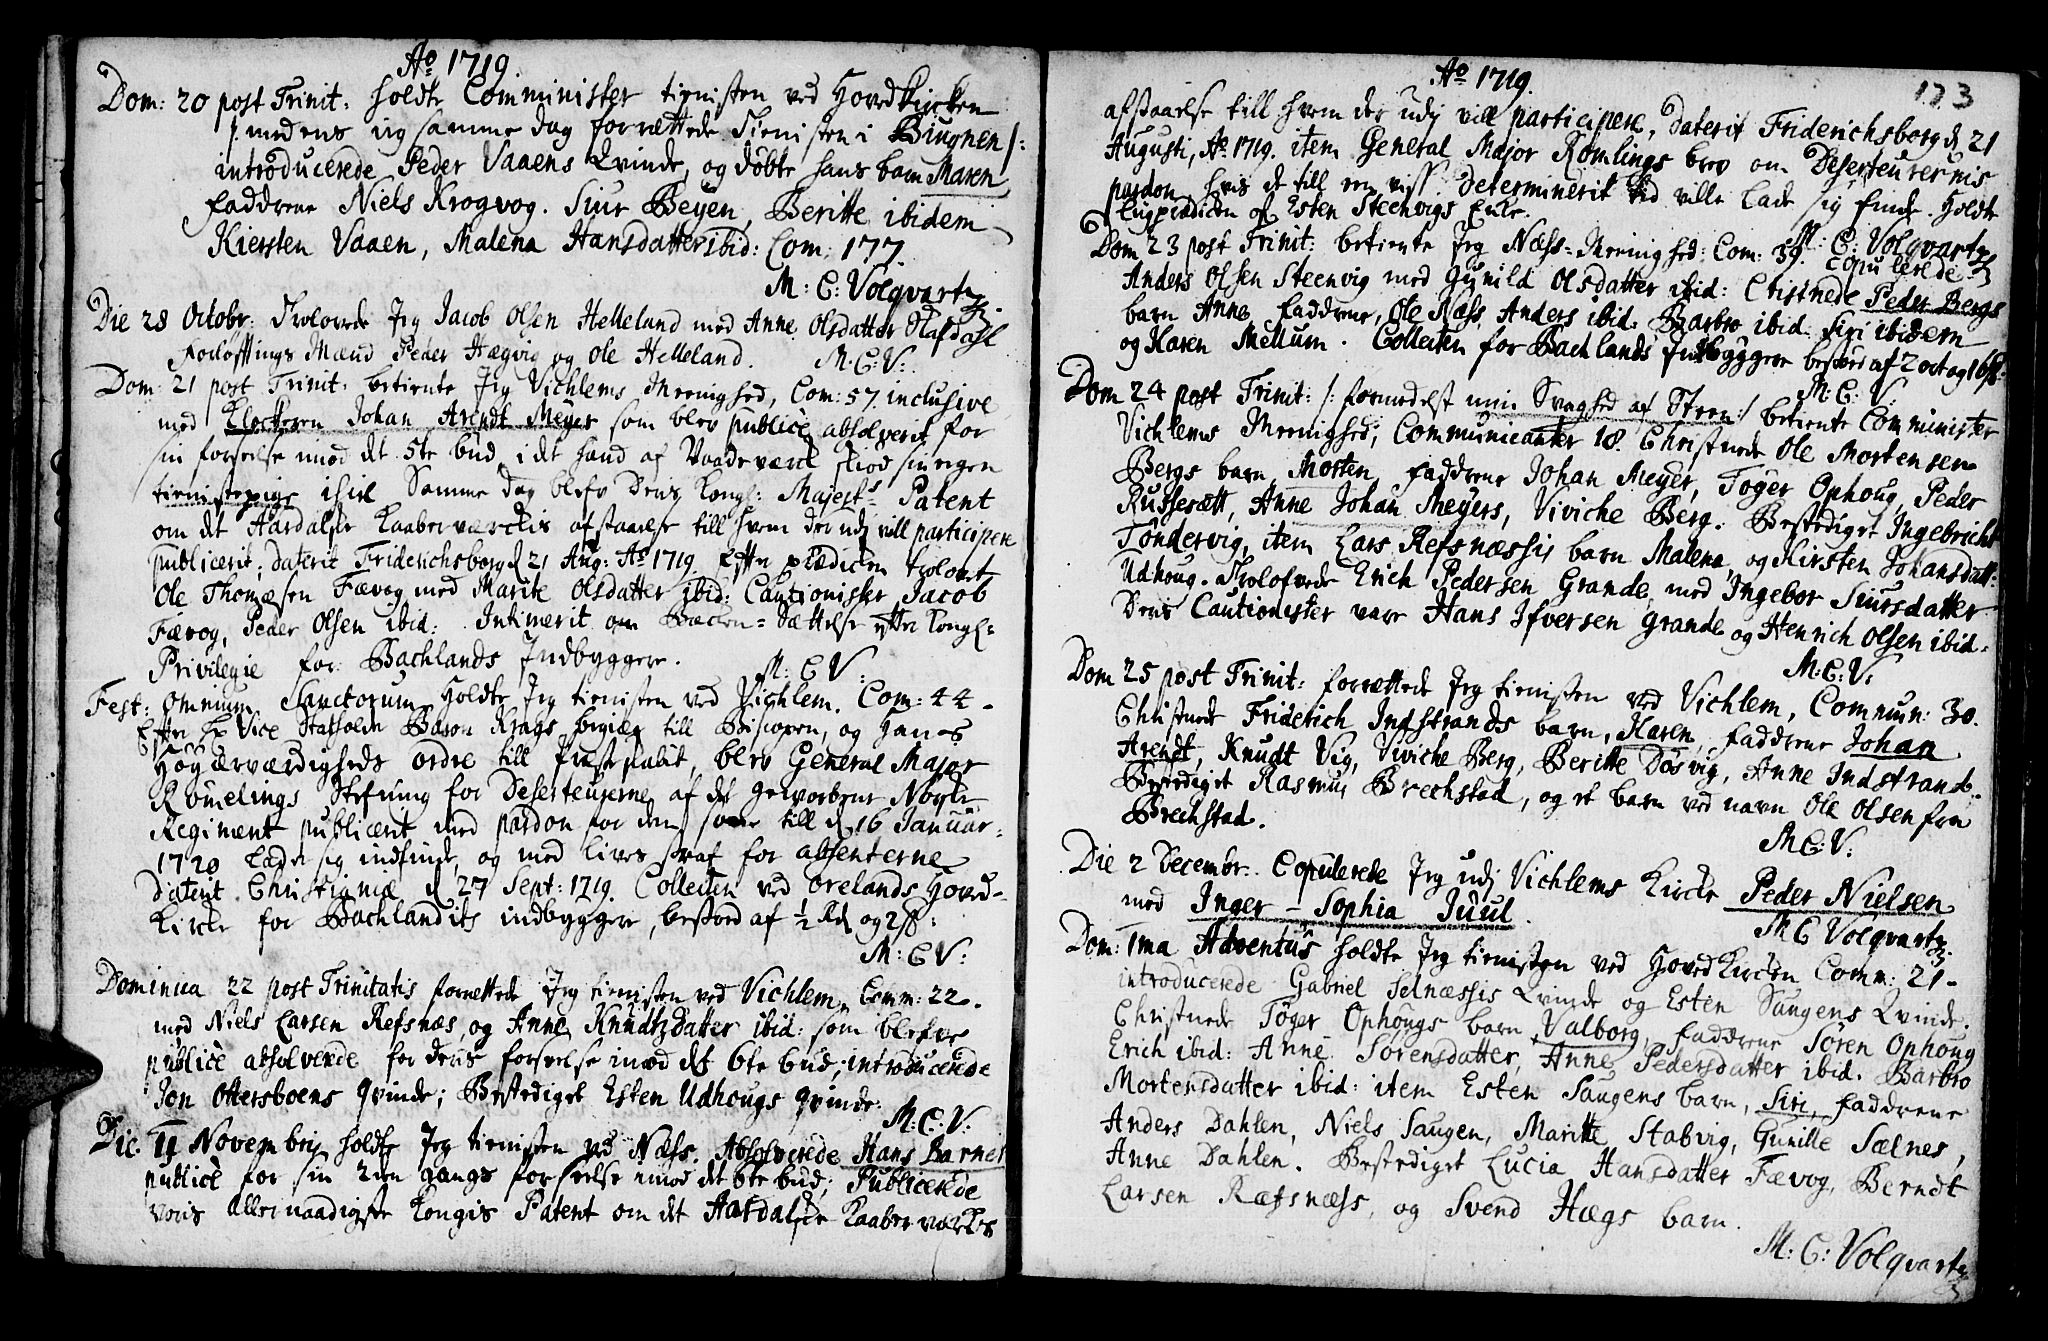 Aº 1719.
Dom: 20 post Trinit: holdte Comminister tienisten ved Hovedkircken
/: medens jeg samme dag forrættede Tienisten i Biugnen :/
introducerede Peder Vaaens Qvinde, og døbte hans barn Maren
Faddrene Niels Krogvog. Siur Beyen, Beritte ibidem
Kiersten Vaaen, Malena Hansdatter ibid: Com: 177.
M: C: Volqvartz.
Die 28 Octobr: Trolovede Jeg Jacob Olsen Helleland med Anne Olsdatter
Forløfftings Mænd Peder Hægvig og Ole Helleland. M: C: V:
Dom: 21 post Trinit: betiente Jeg Vichlems Meenighed, Com: 57. inclusive
med Klockeren Johan Arendt Meyer som blev publicè absolverit for
sin forseelse imod det 5te bud, i det hand af Vaadeværck skiød sin egen
tienistepige ihiel Samme dag blefv Deris Kongl: Majestˢ Patent
om det Aardalske Kaaberværckis afstaaelse till hvem der udj vill participere
publicerit; daterit Friderichsborg d 21 Aug: Aº 1719. Efter prædicken trolovet
Ole Thomesen Fævog med Marite Olsdatter ibid: Cautionister Jacob
Fævog, Peder Olsen ibid: Intimerit om Becken-Sættelse efter Kongl:
Privilegie for Bachlands Indbyggere. M: C V:
Fest: Omnium Sanctorum Holdte Jeg tienisten ved Vichlem. Com: 44.
Efter Hr Vice Statholder Baron Krags begiær till Biscopen, og Hans
Høyærværdigheds ordre till Præsteskabit, blev General Major
Römelings Stefning for Deserteurerne af det geworbene Norske
Regiment publicerit med pardon for dem som till d 16 Januar:
1720 lader sig indfinde, og med lives straf for absenterne
Daterit Christianiæ d 27 Sept: 1719. Collecten ved Ørelands Hoved-
Kircke for Bachlandits indbyggere, bestoed af ½ Rd og 2 ß:
M: C V:
Dominica 22 post Trinitatis forrettede Jeg tienisten ved Vichlem, Comm: 22.
med Niels Larsen Refsnæs, og Anne Knudtzdatter ibid: som blefve
publicè absolverede for deris forseelse imod det 6te bud; introducerede
Jon Ottersboens qvinde; Bestediget Esten Udhougs qvinde.
M: C: V:
Die 11 Novembris holdte Jeg tienisten ved Næss. Absolverede Hans Barnet
publicè for sin 2den gangs forseelse imod det 6te bud; Publicerede
voris allernaadigste Kongis Patent om det Aardalske Kaaberværckes
Aº 1719.
173
afstaaelse till hvem der udj vill participere, Daterit Friderichsborg d 21
Augusti, Aº 1719. item General Major Romlings brev om Deserteurernis
pardon, hvis de till en viss determinerit tid ville lade sig finde. Holdte
Liigprædicken of Esten Steenvigs Enke.
M: C: Volqvartz
Dom 23 post Trinit: betiente Jeg Næss-Meenighed: Com: 39. Copulerede
Anders Olsen Steenvig med Gunild Olsdatter ibid: Christnede Peder Bergs
barn Anne, Faddrene, Ole Næss, Anders ibid: Barbro ibid: Siri ibidem
og Karen Mellum. Collecten for Bachlands Indbyggere bestoed af 2 ort og 16 ß:
M: C: V:
Dom 24 post Trinit: /: formedelst min Svaghed af Steen :/ betiente Comminister
Vichlems Meenighed; Communicanter 18. Christnede Ole Mortensen
Bergs barn, Morten, Faddrene Johan Meyer, Tøger Ophoug, Peder
Russesætt, Anne Johan Meyers, Viviche Berg. Bestediget Ingebricht
Tøndervig, item Lars Refsnæssis barn Malena, og Kirsten Johansdatt:
Udhoug. Trolofvede Erich Pedersen Grande, med Ingebor Siursdatter
Deris Cautionister vare Hans Ifversen Grande og Henrich Olsen ibid:
M: C: V:
Dom 25 post Trinit: forrettede Jeg tienisten ved Vichlem, Commun: 30.
Christnede Friderich Indstrands barn, Karen, Faddrene Johan
Arendt, Knudt Vig, Viviche Berg, Beritte Døsvig, Anne Indstrand.
Bestediget Rasmus Brechstad, og et barn ved navn Ole Olsen fra
Brechstad.
M: C: V:
Die 2 Decembr: Copulerede Jeg udj Vichlems Kircke Peder Nielsen
med Inger - Sophia Juul.
M: C Volqvartz
Dom: 1ma Adventus holdte Jeg tienisten ved Hoved Kircken Comm: 21.
introducerede Gabriel Selnæssis Qvinde og Esten Saugens Qvinde.
Christnede Tøger Ophougs barn, Valborg, Faddrene Søren Ophoug
Erich ibid: Anne Sørensdatter, Anne Pedersdatter ibid. Barbro
Mortensdatter ibid: item Esten Saugens barn, Siri, Faddrene
Anders Dahlen, Niels Saugen, Maritte Stabvig, Gunille Sælnes,
Anne Dahlen. Bestediget Lucia Hansdatter Fævog, Berndt
Larsen Ræfsnæss, og Svend Hægs barn.
M: C: Volqvartz